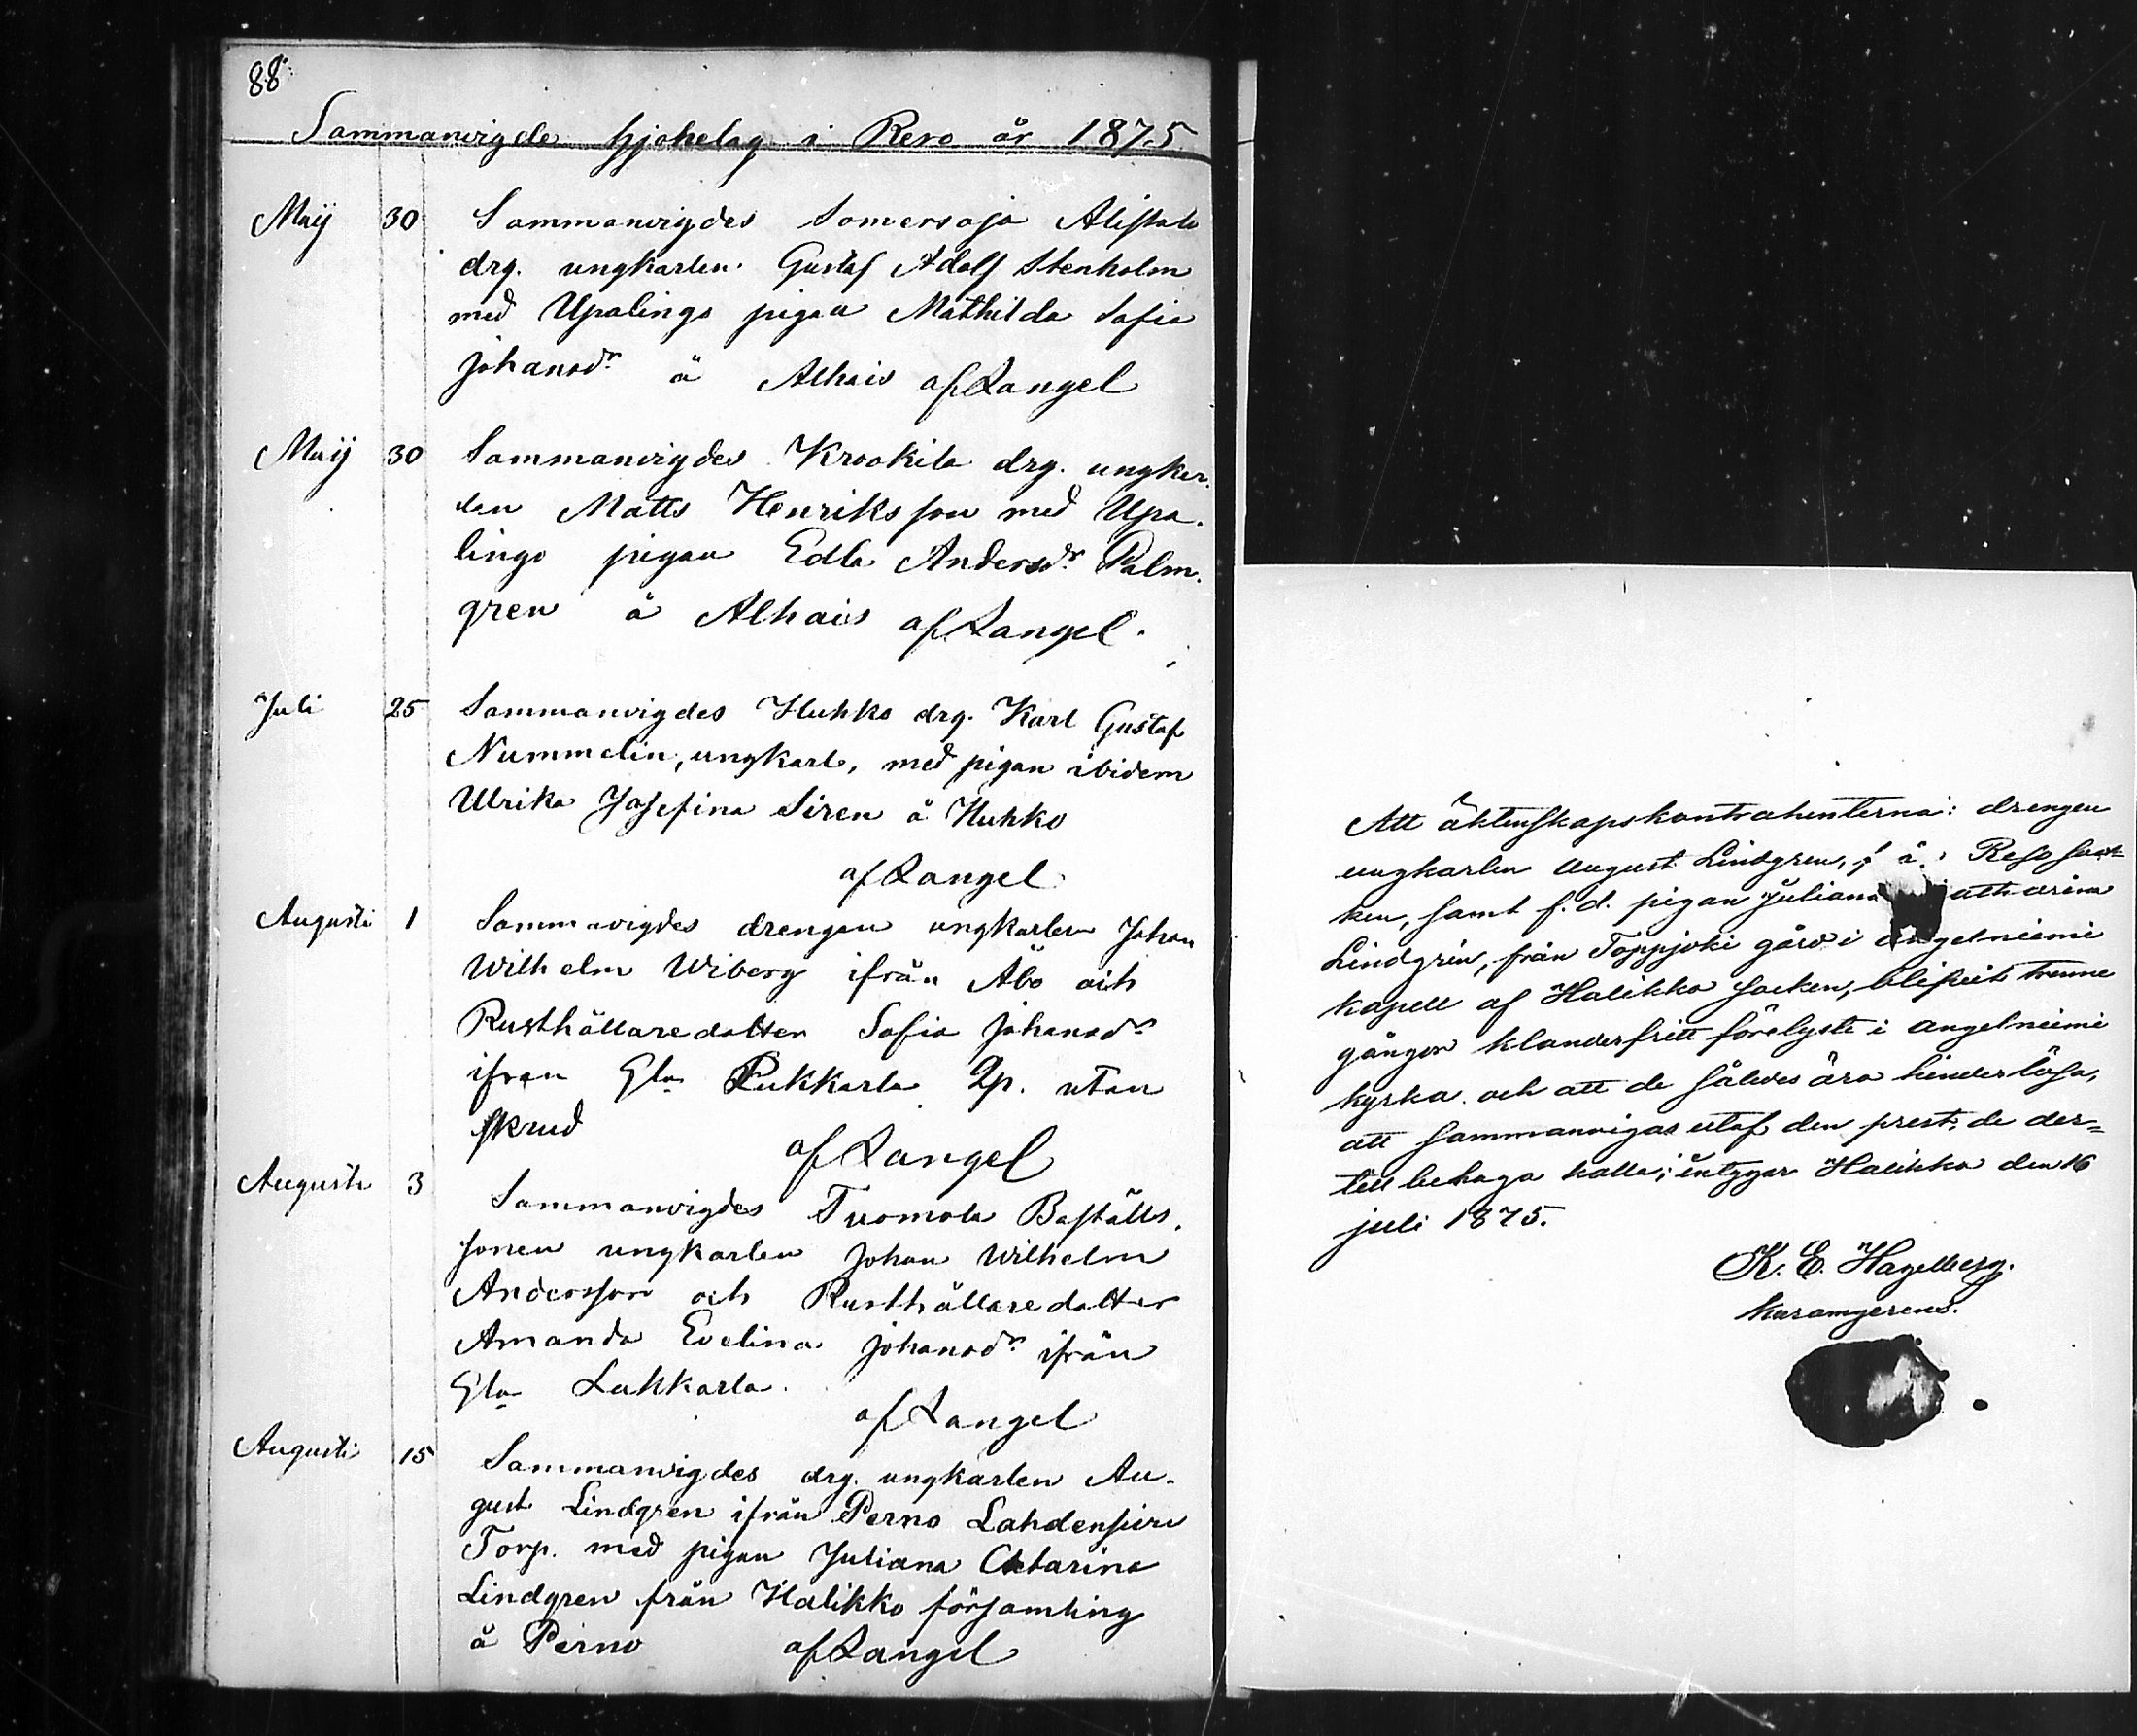 88
Sammanvigde hjohelag i Reso år 1875
Maij 30 Sammanvigdes Somersoja Alistalo
drg. ungkarlen Gustaf Adolf Stenholm
med Upalingo pigan Mathilda Sofia
Johansdr å Alhais af Langel
Maij 30 Sammanvigdes Krookila drg. ungkar-
len Matts Henriksson med Upa-
lingo pigan Edla Andersdr Palm-
gren å Alhais af Langel.
Juli 25 Sammanvigdes Huhko drg. Karl Gustaf
Nummelin, ungkarl, med pigan ibidem
Ulrika Josefina Siren å Huhko
af Langel
Augusti 1 Sammavigdes drengen ungkarlen Johan
Wilhelm Wiberg ifrån Åbo och
Rusthållaredotter Sofia Johansdr
ifran Gla Lukkarla Qp. utan
skrud
af Langel
Augusti 3 Sammanvigdes Tuomola Boställs.
sonen ungkarlen Johan Wilhelm
Andersson och Rusthållaredotter
Amanda Evelina Johansdr ifrån
Gla Lukkarla.
af Langel
Augusti 15 Sammanvigdes drg. ungkarlen Au-
gust Lindgren ifrån Perno Lahdenperä
Torp. med pigan Juliana Catarina
Lindgren från Halikko församling
å Perno af Langel
Att äktenskapskontrahenterna: drengen
ungkarlen August Lindgren, f å Reso soc-
ken, samt f.d. pigan Juliana atharina
Lindgrén, från Toppjoki gård i Angelniemi
kapell af Halikko socken, blifvit trenne
gånger klanderfritt förelyste i Angelniemi
kyrka och att de således äro hinderlösa,
att sammanvigas utaf den prest, de der=
till behaga kalla; intygar Halikko den 16
juli 1875.
K. E. Hagelberg.